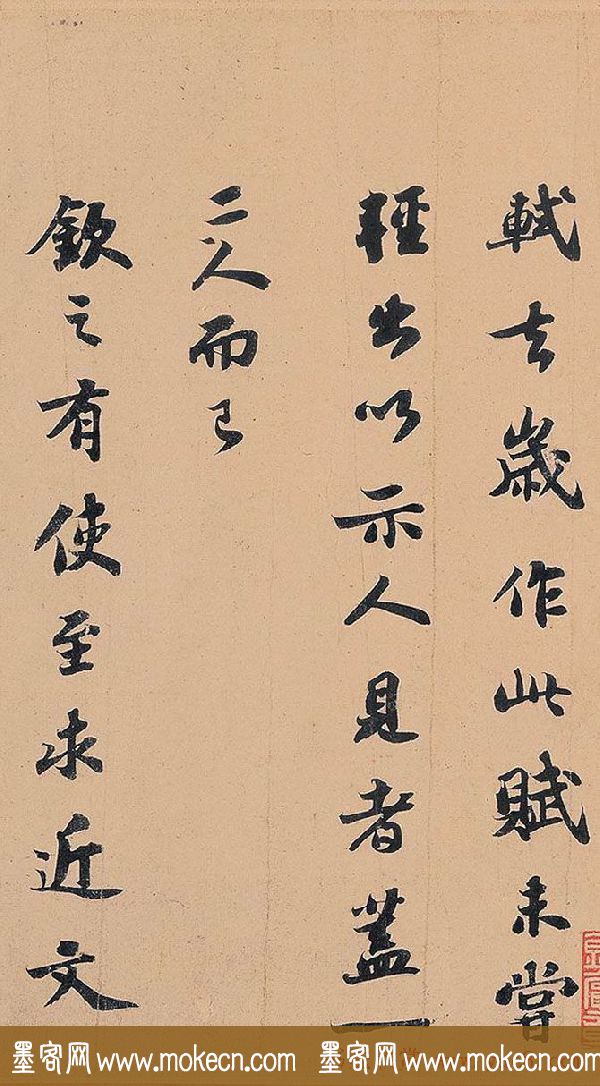 軾去歲作此賦未嘗
輕出以示人見者蓋一
二人而已
欽之有使至求近文
墨客网www.mokecn.com 墨客网www.mokecn.com